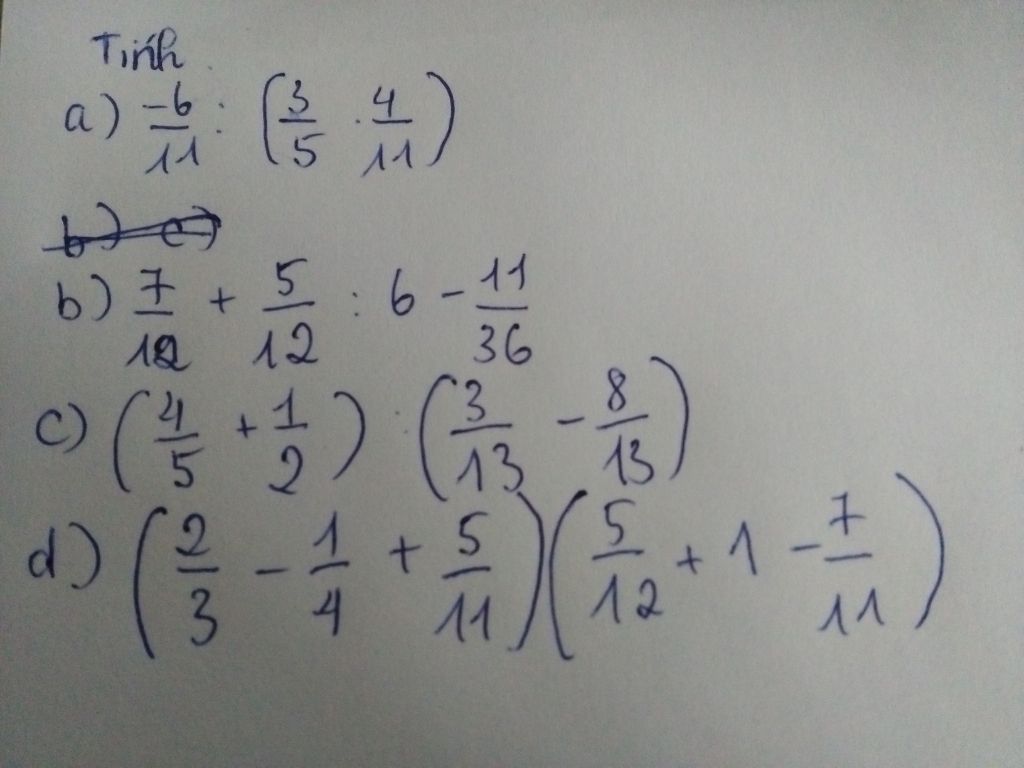 Tính
a) -6/11 : (3/5 . 4/11)
b) c)
b) 7/12 + 5/12 : 6 - 11/36
c) (4/5 + 1/2) : (3/13 - 8/13)
d) (2/3 - 1/4 + 5/11) (5/12 + 1 - 7/11)